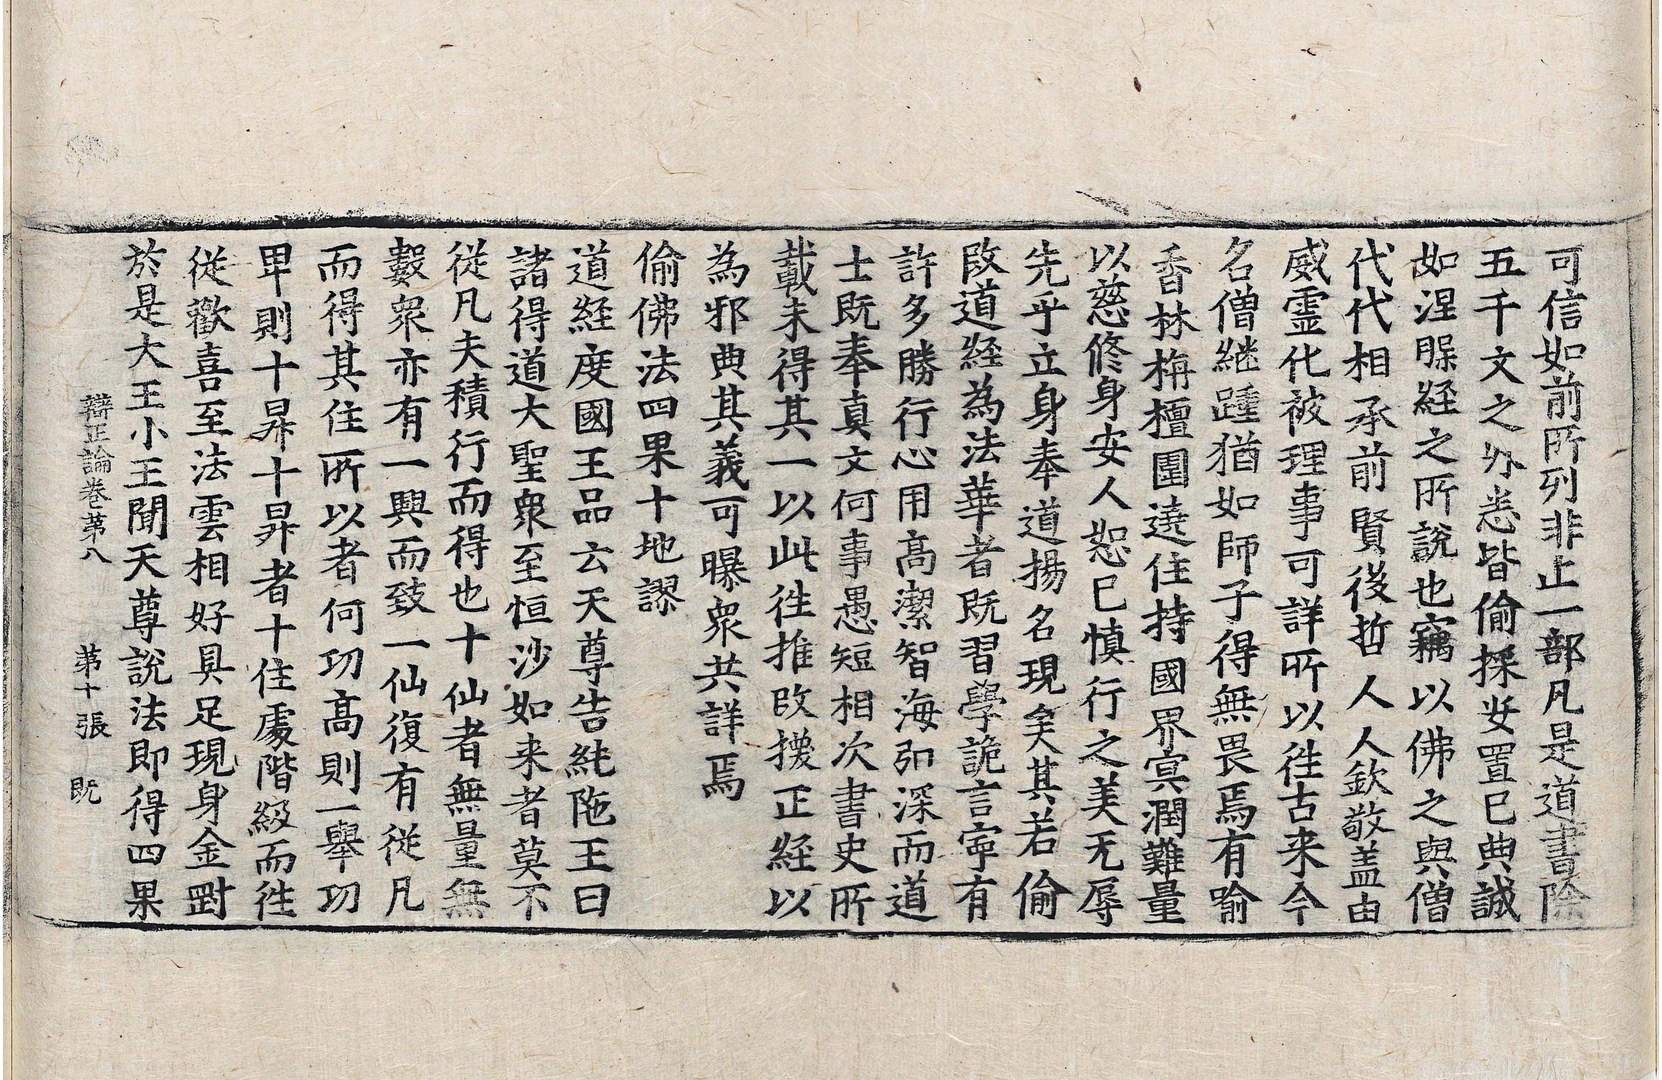 可信如前所列非止一部凡是道書除
五千文之外悉皆偷採安置已典誠
如涅槃經之所說也竊以佛之與僧
代代相承前賢後哲人人欽敬盖由
威霊化被理事可詳所以往古来今
名僧継踵猶如師子得無畏焉有喻
香林栴檀圍遶住持國界寅潤難量
以慈修身安人恕已慎行之美无辱
先乎立身奉道揚名現矣其若偷
改道経為法華者既習學詭言寜有
許多勝行心用高潔智海弘深而道
士既奉真文何事愚短相次書史所
載未得其一以此往推改換正経以
為邪典其義可曝衆共詳焉
偷佛法四果十地謬
道経度國王品云天尊告純陁王曰
諸得道大聖衆至恒沙如来者莫不
従凡夫積行而得也十仙者無量無
數衆亦有一興而致一仙復有従凡
而得其住所以者何功高則一舉功
卑則十昇十昇者十住處階級而往
従歡喜至法雲相好具足現身金剛
於是大王小王聞天尊說法即得四果
辯正論卷第八 第十張 既